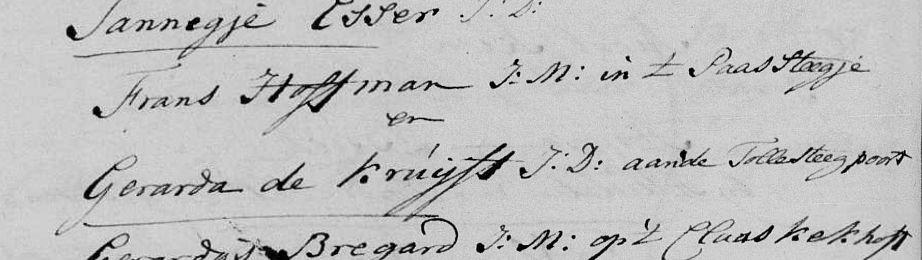 Jannegje Esser J: D:
Frans Hoffman J: M: in t Paas Steegje
en
Gerarda de Kruijff J: D: aande Tollesteegpoort
Gerardus Bregard J: M: op't Claas kekhoft